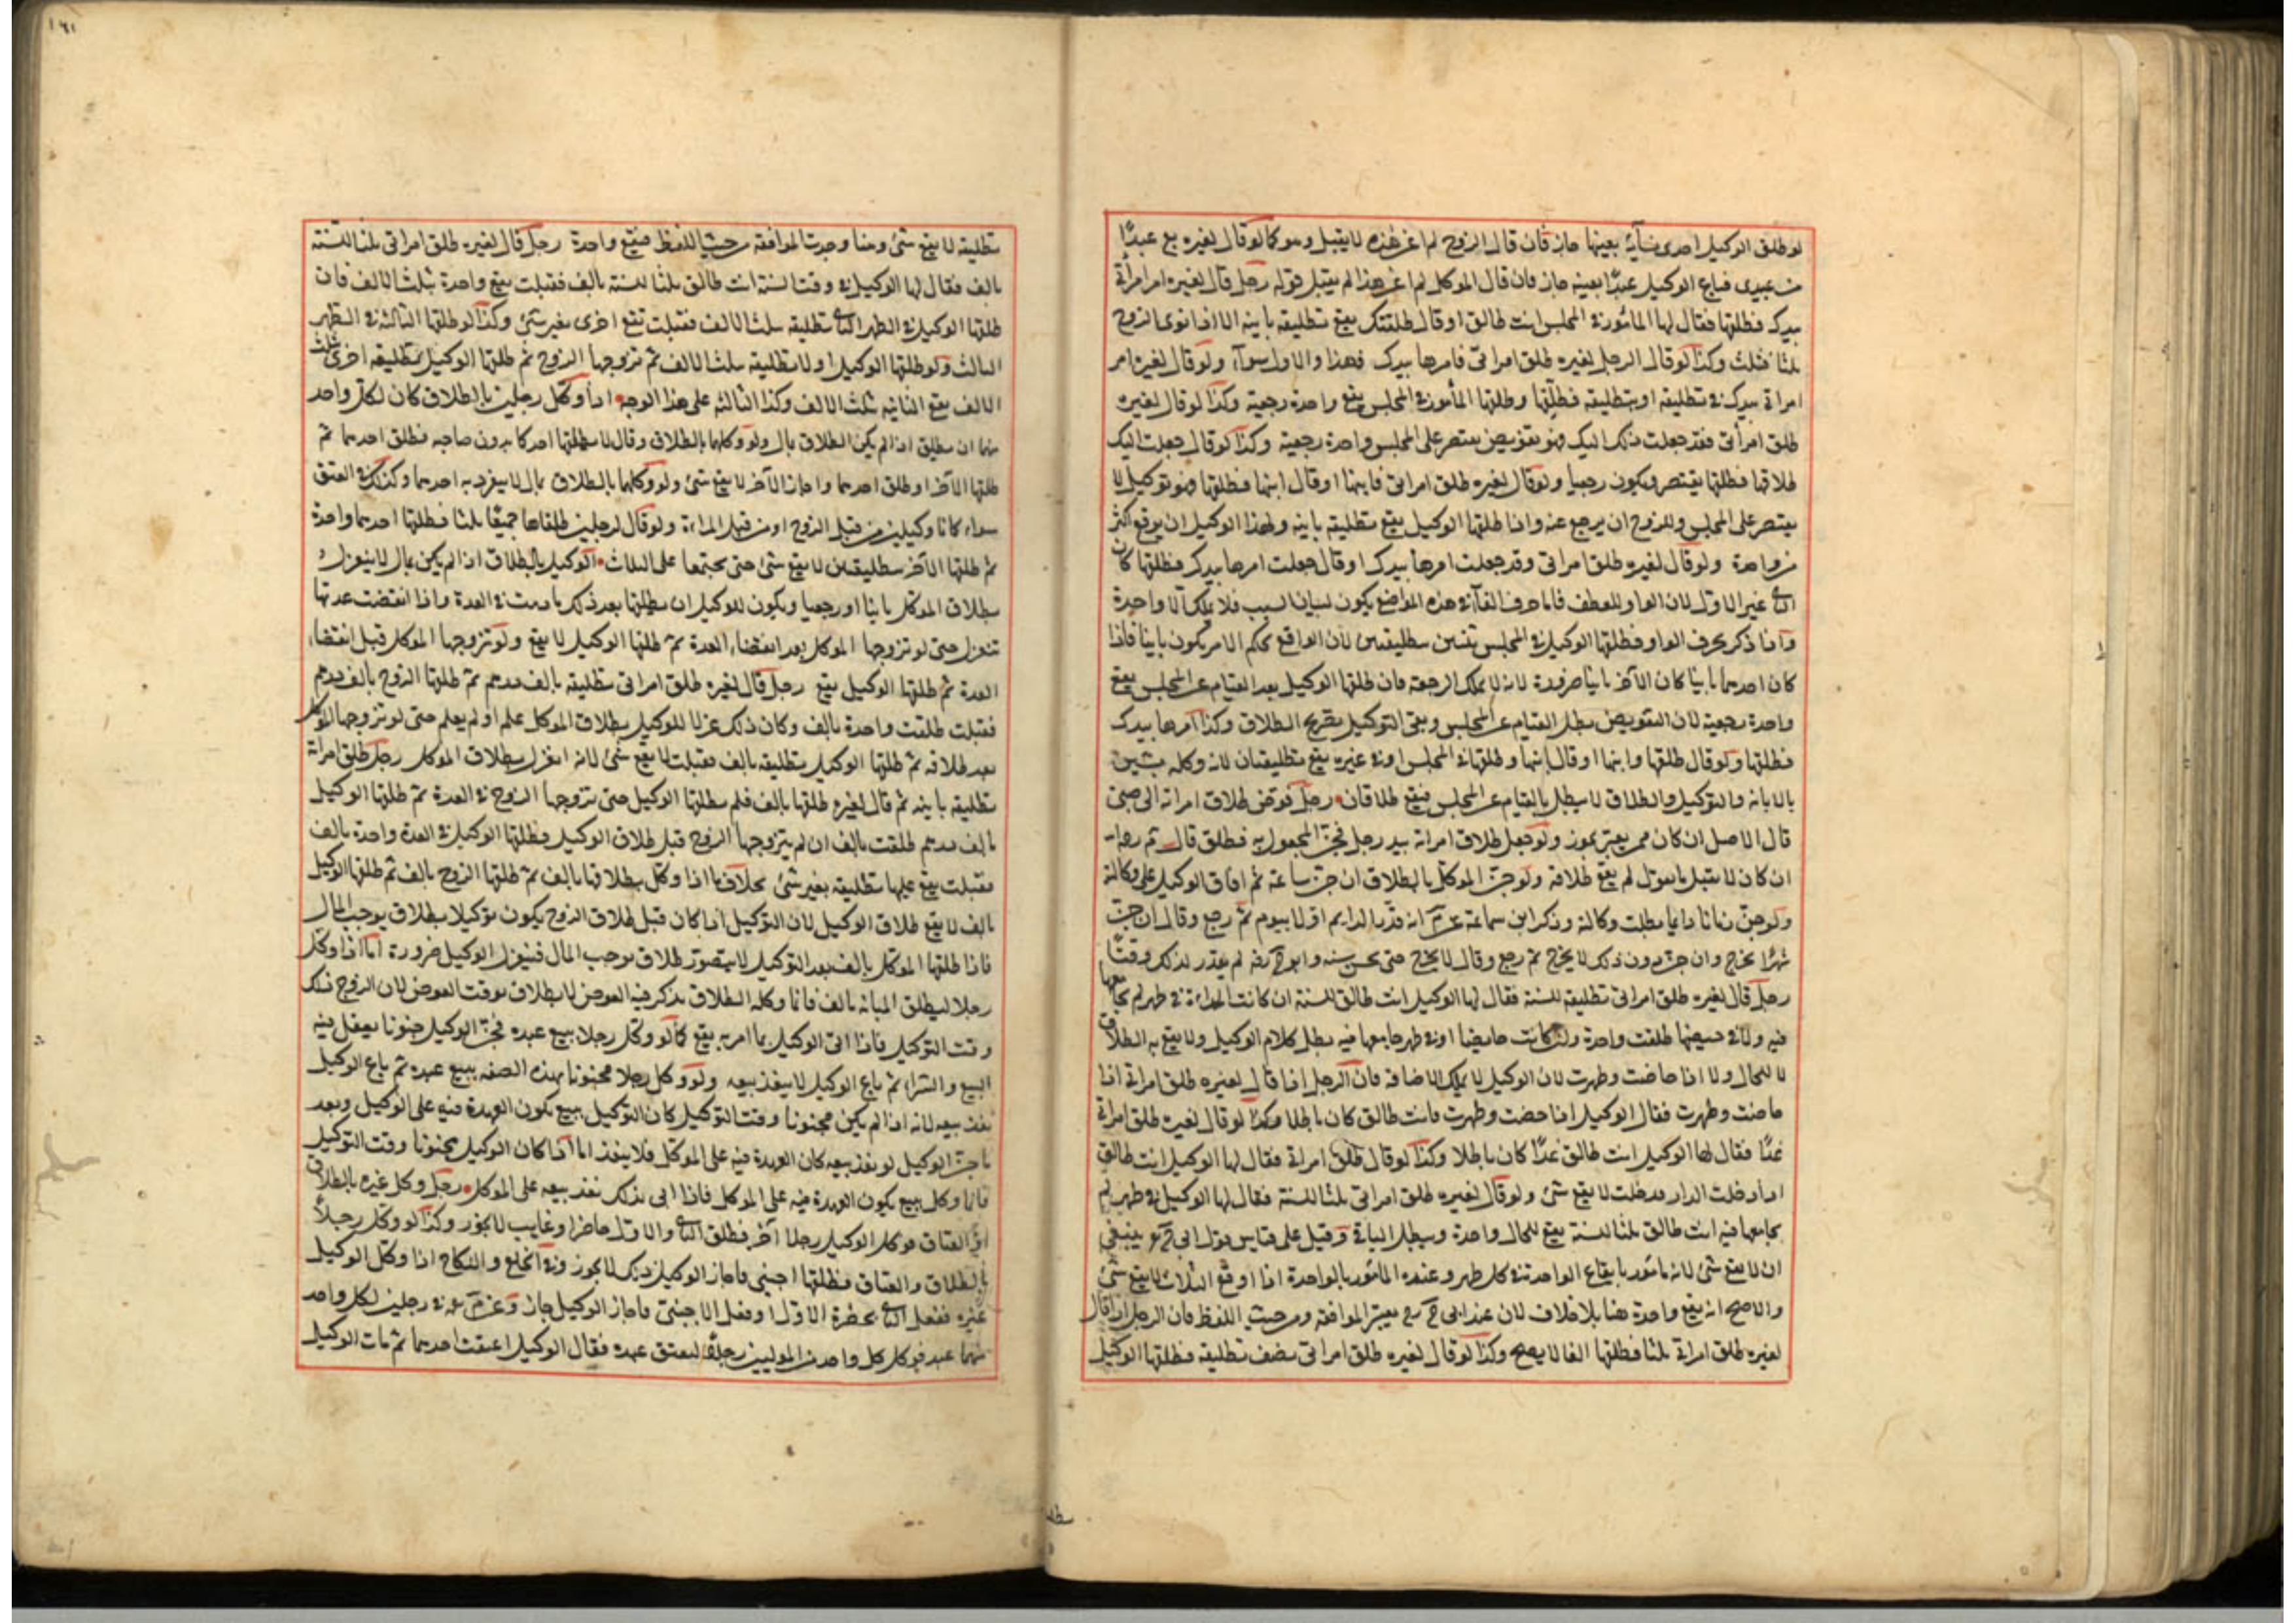 لو طلق الوكيل احدى نسآئه بعينها جاز فان قال الزوج لم اعن هذه لا يقبل وهو كما لو قال لغيره بع عبدًا
من عبيدى فباع الوكيل عبدًا بعينه جاز فان قال الموكل لم اعن هذا لم يقبل قوله رجل قال لغيره امر امرأتى
بيدك فطلقها فقال لها المأمور فى المجلس انت طالق او قال طلقتك يقع تطليقه باينه الا اذا نوى الزوج
ثلثا فثلث وكذا لو قال الرجل لغيره طلق امراتى فامرها بيدك فهذا والاول سوآء ولو قال لغيره امر
امراتى بيدك فى تطليقه او بتطليقه فطلقها وطلقها المأمور فى المجلس يقع واحدة رجعية وكذا لو قال لغيره
طلق امرأتى فقد جعلت ذلك اليك فهو تفويض يقتصر على المجلس واحدة رجعية وكذا لو قال جعلت اليك
طلاقها فطلقها يقتصر ويكون رجعيا ولو قال لغيره طلق امراتى فابنها او قال ابنها فطلقها فهو توكيل لا
يقتصر على المجلس وللزوج ان يرجع عنه واذا طلقها الوكيل يقع تطليقه باينه ولهذا الوكيل ان يوقع اكثر
من واحدة ولو قال لغيره طلق امراتى وقد جعلت امرها بيدك او قال جعلت امرها بيدك فطلقها كان
الثانى غير الاول لان الواو للعطف فاما حرف الفآء فى هذه المواضع يكون لبيان السبب فلا يملك الا واحدة
وآذا ذكر بحرف الواو فطلقها الوكيل فى المجلس ثنتين تطليقتين لان الواقع بحكم الامر يكون باينا فاذا
كان احدهما باينا كان الآخر باينا ضرورة لانه لا يملك الرجعة فان طلقها الوكيل بعد القيام عن المجلس يقع
واحدة رجعية لان التفويض بطل بالقيام عن المجلس وبقى التوكيل بصريح الطلاق وكذا امرها بيدك
فطلقها ولو قال طلقها وابنها او قال ابنها وطلقها فى المجلس او فى غيره يقع تطليقتان لانه وكله بشيئين
بالابانه والتوكيل والطلاق لا يبطل بالقيام عن المجلس فيقع طلاقان رجل فوض طلاق امراته الى صبى
قال الاصل ان كان ممن يعبر يجوز ولو جعل طلاق امراته بيد رجل فجن المجعول اليه فطلق قال م رحمه
ان كان لا يعقل ما يقول لم يقع طلاقه ولو جن الموكل بالطلاق ان جن ساعة ثم افاق الوكيل على وكالته
ولو جن زمانا دايما بطلت وكالته وذكر ابن سماعة عن م انه قدر الدايم اولا بيوم ثم رجع وقال ان جن
شهرًا يخرج وان جن دون ذلك لا يخرج ثم رجع وقال لا يخرج حتى يجن سنه وابو ح رضه لم يقدر لذلك وقتًا
رجل قال لغيره طلق امراتى تطليقه للسنة فقال لها الوكيل انت طالق للسنة ان كانت المراة فى طهر لم يجامعها
فيه ولا فى حيضها طلقت واحدة وان كانت حايضا او فى طهر جامعها فيه بطل كلام الوكيل ولا يقع به الطلاق
لا للحال ولا اذا حاضت وطهرت لان الوكيل لا يملك الاضافة فان الرجل اذا قال لغيره طلق امراتى اذا
حاضت وطهرت فقال الوكيل اذا حضت وطهرت فانت طالق كان باطلا وكذا لو قال لغيره طلق امراتى
غدًا فقال لها الوكيل انت طالق غدًا كان باطلا وكذا لو قال طلق امراتى فقال لها الوكيل انت طالق
اذا دخلت الدار فدخلت لا يقع شئ ولو قال لغيره طلق امراتى ثلثا للسنة فقال لها الوكيل فى طهر لم
يجامعها فيه انت طالق ثلثا للسنة يقع للحال واحدة ويبطل الباقى وقيل على قياس قول ابى ح رح ينبغى
ان لا يقع شئ لانه مأمور بايقاع الواحدة فى كل طهر وعنده المأمور بالواحدة اذا اوقع الثلاث لا يقع شئ
والاصح انه يقع واحدة هنا بلا خلاف لان عند ابى ح رح يعتبر الموافقة من حيث اللفظ فان الرجل اذا قال
لغيره طلق امراتى ثلثا فطلقها الفا لا يصح وكذا لو قال لغيره طلق امراتى نصف تطليقه فطلقها الوكيل
تطليقه لا يقع شئ وهنا وجدت الموافقه من حيث اللفظ فيقع واحدة رجل قال لغيره طلق امراتى ثلثا للسنة
بالف فقال لها الوكيل فى وقت السنة انت طالق ثلثا للسنة بالف فقبلت يقع واحدة بثلث الالف فان
طلقها الوكيل فى الطهر الثانى تطليقه بثلث الالف فقبلت تقع اخرى بغير شئ وكذا لو طلقها الثالثة فى الطهر
الثالث ولو طلقها الوكيل اولا تطليقه بثلث الالف ثم تزوجها الزوج ثم طلقها الوكيل تطليقه اخرى بثلث
الالف يقع الثانيه بثلث الالف وكذا الثالثه على هذا الوجه اذا وكل رجلين بالطلاق كان لكل واحد
منهما ان يطلق اذا لم يكن الطلاق بمال ولو وكلهما بالطلاق وقال لا يطلقها احدكما بدون صاحبه فطلق احدهما ثم
طلقها الآخر او طلق احدهما واجاز الآخر لا يقع شئ ولو وكلهما بالطلاق بمال لا ينفرد به احدهما وكذلك فى العتق
سواء كانا وكيلين من قبل الزوج او من قبل المراة ولو قال لرجلين طلقاها جميعًا ثلثا فطلقها احدهما واحدة
ثم طلقها الآخر تطليقتين لا يقع شئ حتى يجتمعا على الثلاث الوكيل بالطلاق اذا لم يكن بمال لا ينعزل
بطلاق الموكل باينا او رجعيا ويكون للوكيل ان يطلقها بعد ذلك ما دامت فى العدة واذا انقضت عدتها
تنعزل حتى لو تزوجها الموكل بعد انقضاء العدة ثم طلقها الوكيل لا يقع ولو تزوجها الموكل قبل انقضاء
العدة ثم طلقها الوكيل يقع رجل قال لغيره طلق امراتى تطليقه بالف درهم ثم طلقها الزوج بالف درهم
فقبلت طلقت واحدة بالف وكان ذلك عزلا للوكيل بطلاق الموكل علم او لم يعلم حتى لو تزوجها الموكل
بعد طلاقه ثم طلقها الوكيل بتطليقه بالف فقبلت لا يقع شئ لانه انعزل بطلاق الموكل رجل طلق امراته
تطليقه باينه ثم قال لغيره طلقها بالف فلم يطلقها الوكيل حتى تزوجها الزوج فى العدة ثم طلقها الوكيل
بالف درهم طلقت بالف ان لم يتزوجها الزوج قبل طلاق الوكيل فطلقها الوكيل فى العدة واحدة بالف
فقبلت يقع عليها تطليقه بغير شئ بخلاف ما اذا وكل بطلاقها بالف ثم طلقها الزوج بالف ثم طلقها الوكيل
بالف لا يقع طلاق الوكيل لان التوكيل اذا كان قبل طلاق الزوج يكون توكيلا بطلاق يوجب المال
فاذا طلقها الموكل بالف بعد التوكيل لا يتصور طلاق يوجب المال فينعزل الوكيل ضرورة اما اذا وكل
رجلا ليطلق المبانه بالف فانما وكله بطلاق يذكر فيه العوض لا بطلاق العوض لان الزوج فى ذلك
وقت التوكيل فاذا اتى الوكيل بما امر به يقع كما لو وكل رجلا ببيع عبده فجن الوكيل جنونا يعقل فيه
البيع والشراء ثم باع الوكيل لا ينفذ بيعه ولو وكل رجلا مجنونا بهذه الصفه ببيع عبده ثم باع الوكيل
نفذ بيعه لانه اذا لم يكن مجنونا وقت التوكيل كان التوكيل ببيع يكون العهدة فيه على الوكيل وبعد
ما جن الوكيل لو نفذ بيعه كان العهدة فيه على الموكل فلا ينفذ اما اذا كان الوكيل مجنونا وقت التوكيل
فانما وكل ببيع يكون العهدة فيه على الموكل فاذا اتى بذلك نفذ بيعه على الموكل رجل وكل غيره بالطلاق
او العتاق فوكل الوكيل رجلا آخر فطلق الثانى والاول حاضر او غايب لا يجوز وكذا لو وكل رجلاً
بالطلاق والعتاق فطلقها اجنبى فاجاز الوكيل ذلك لا يجوز وفى الخلع والنكاح اذا وكل الوكيل
غيره ففعل الثانى بحضرة الاول او فعل الاجنبى فاجاز الوكيل جاز وعن م رجلين لكل واحد
منهما عبد فوكل كل واحد من الموليين رجلاً ليعتق عبده فقال الوكيل اعتقت احدهما ثم مات الوكيل